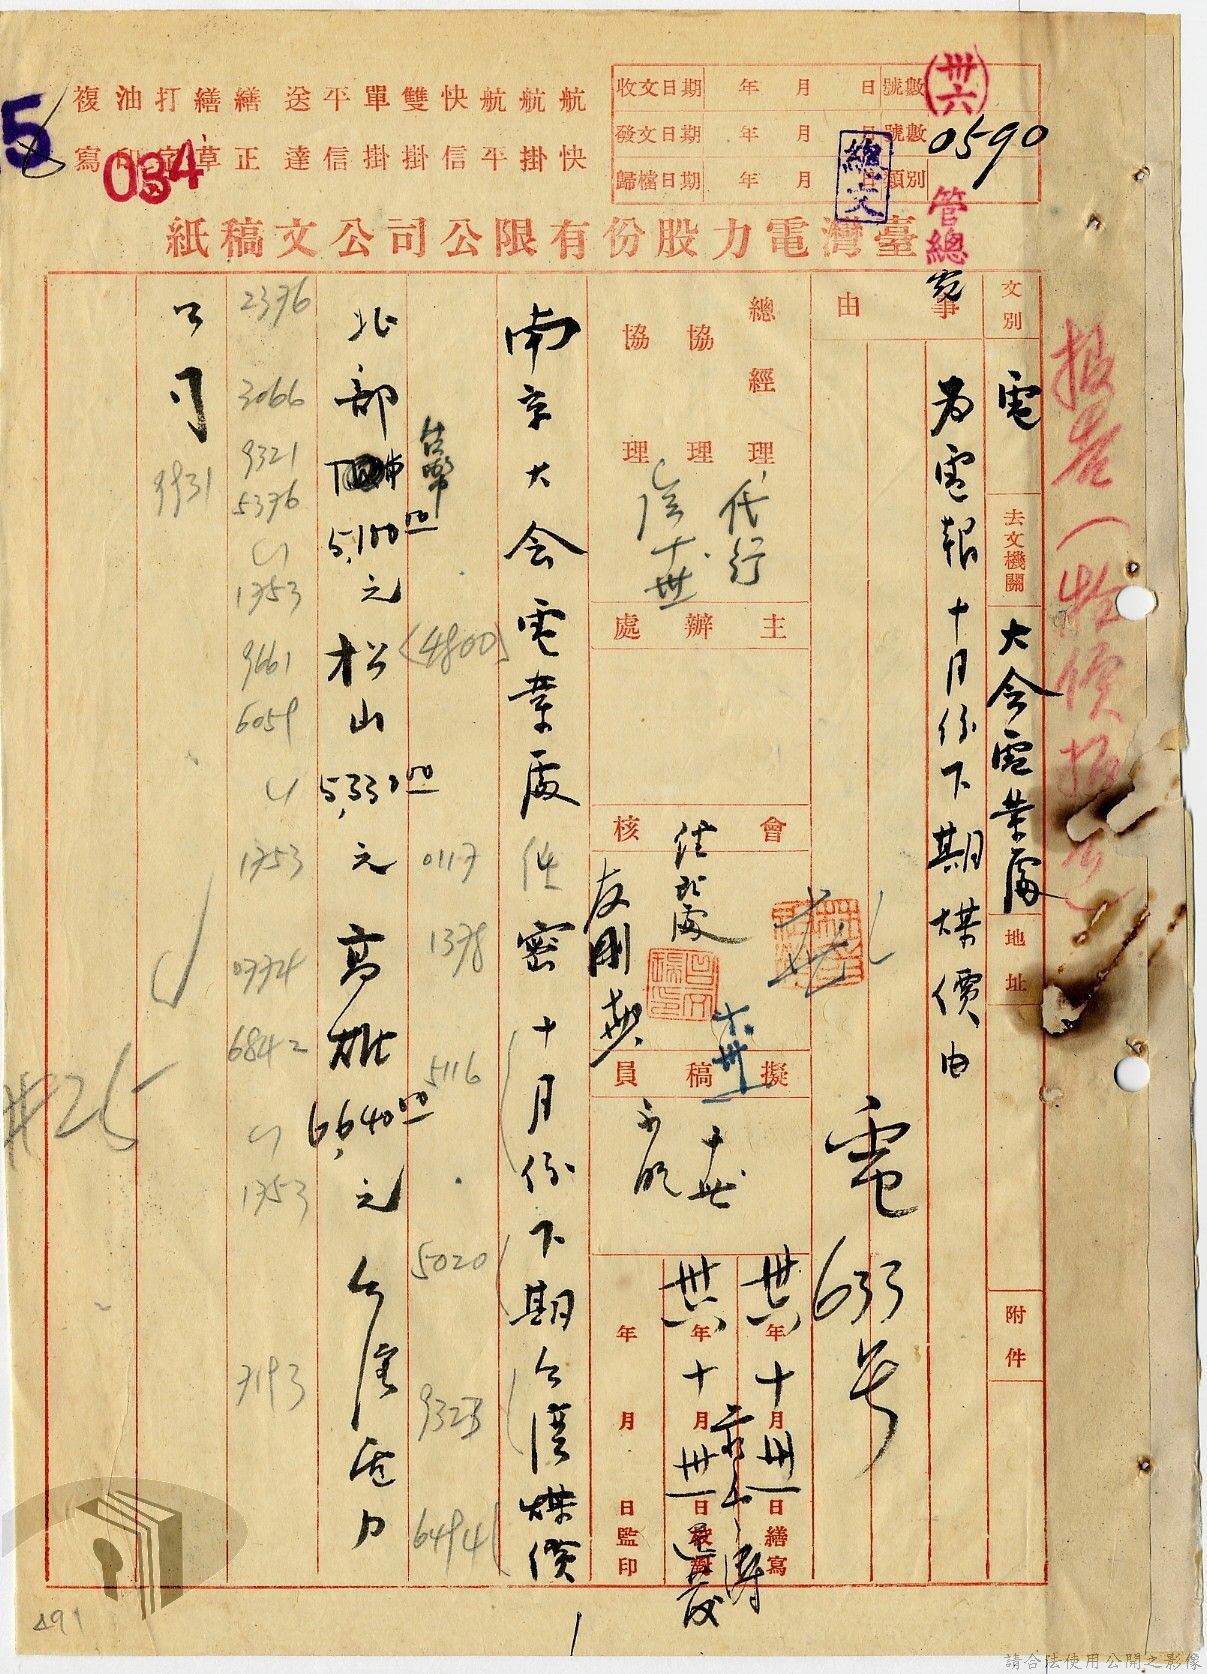 收文日期 年 月 日 號數
發文日期 年 月 日 號數
歸檔日期 年 月 日 類別
卅六
0590
管總
總文
航 航 航 快 雙 單 平 送 繕 繕 打 油 複
快 掛 平 信 掛 掛 信 達 正 草 字 印 寫
5
034
臺灣電力股份有限公司公文稿紙
文別 電
去文機關 大会電業處
地址
附件
事由
為電報十月份下期煤價由
電633号
總經理 代行
協理
協理
主辦處
會核
擬稿員
卅六年十月卅一日繕寫
卅六年十月卅一日校對
年 月 日監印
南京大会電業處 密 十月份下期台灣煤價
台幣
(4800)
0117
1378
5116
5020
9323
6494
北部 5,100.00元 松山 5,330.00元 高雄 6,640.00元 台灣電力
2376
3066
9321
5376
1753
9661
6059
1753
0774
6842
1753
7193
公司
9931
#25
491
請合法使用公開之影像